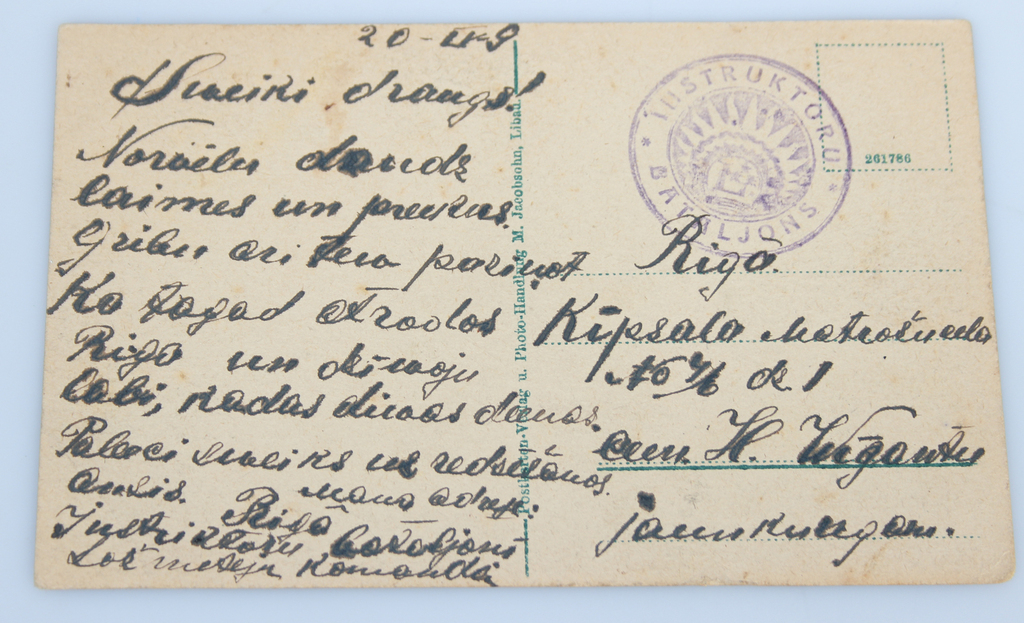 20-IX-9
Sveiki draugs!
Novēlu daudz
laimes un preekus.
Gribu ari tevi paziņot
Ka tagad atrodos
Rigā un dzivoju
labi, kādas divas dienas.
Paleeci sveiks us redzēšanos.
Ansis. Mana adrese:
Rigā
Instruktoru bataljonā
Lož metēju Komandā
Postkarten-Verlag u. Photo-Handlung M. Jacobsohn, Libau.
* INSTRUKTORU *
BATALJONS
261786
Rigā.
Ķīpsala Matrošu iela
No 4/6 dz 1
cien. H. Wīgantu
jaunkungam.